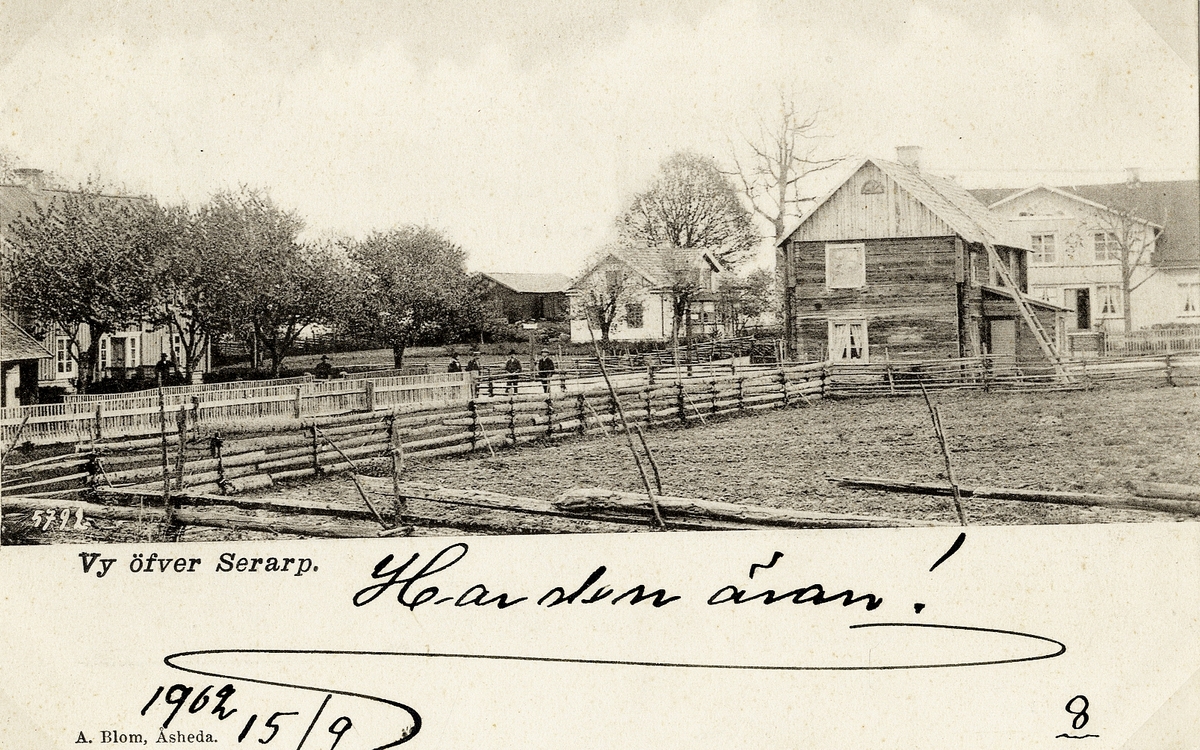 5792.
Vy öfver Serarp.
Har den äran!
1902
15/9
8
A. Blom, Åsheda.